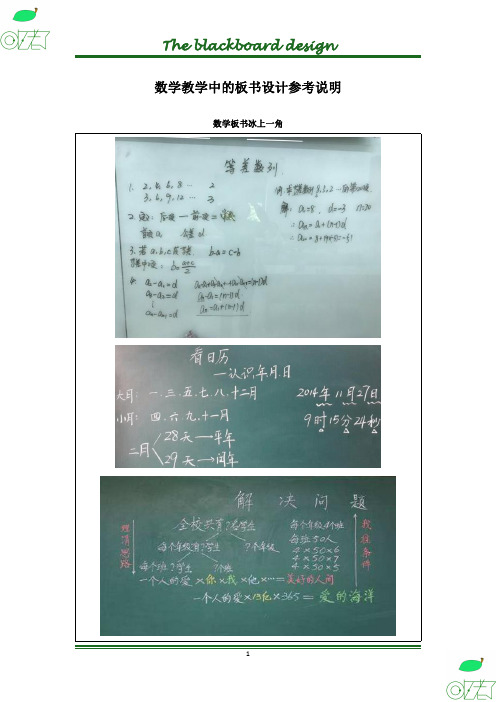 The blackboard design
数学教学中的板书设计参考说明
数学板书冰上一角
等差数列
1. 2, 4, 6, 8 … 2
3, 6, 9, 12 … 3
2. 定义: 后项 — 前项 =
首项 a₁ 公差 d
3. 若 a, b, c 成等差 b-a = c-b
等差中项: b = a+c/2
4. a₂-a₁=d
a₃-a₂=d
aₙ-aₙ₋₁=d
aₙ-a₁=(n-1)d
aₙ=a₁+(n-1)d
例 求等差数列 8, 5, 2 …
解: a₁=8, d=-3 n=20
∴ aₙ=a₁+(n-1)d
看日历
—认识年、月、日
大月: 一、三、五、七、八、十、十二月
小月: 四、六、九、十一月
二月
28天→平年
29天→闰年
2014年11月27日
9时15分24秒
解 决 问 题
理清思路
全校共有?名学生
每个年级?学生 ?个年级
每个班?学生 ?个班
每个年级4个班
每班50人
4×50×6
4×50×7
4×50×5
找准条件
一个人的爱×你×我×他×…=美好的人间
一个人的爱×13亿×365=爱的海洋
1